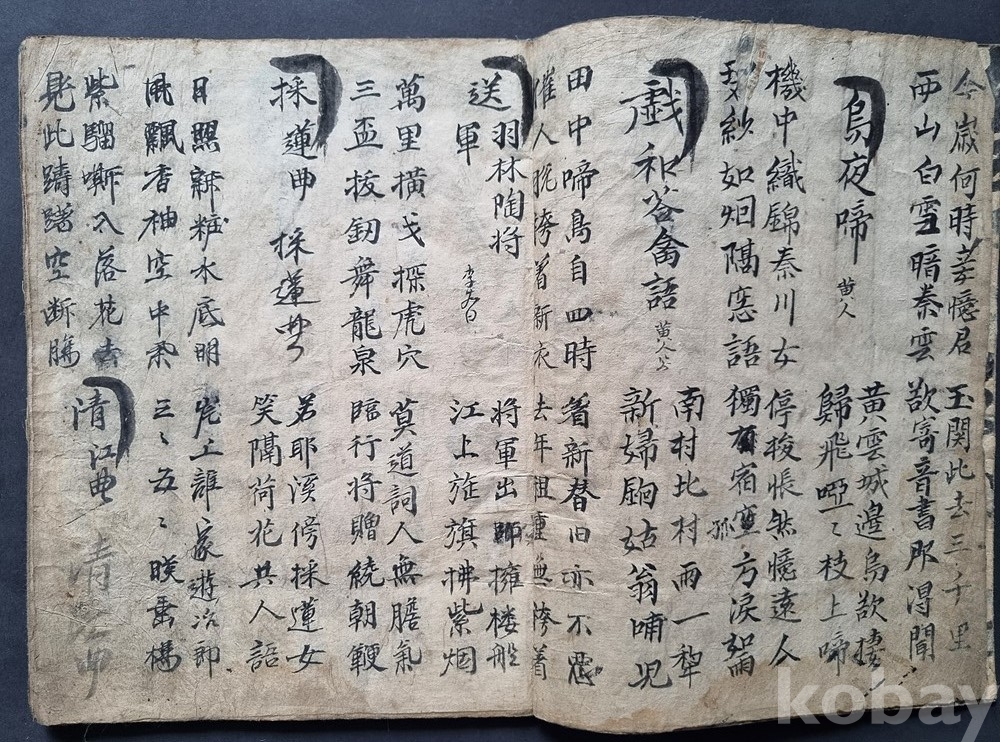 今歲何時妾憶君
玉関此去三千里
西山白雪暗秦雲
欲寄音書那得聞
烏夜啼
黄雲城邊烏欲棲
歸飛啞〻枝上啼
機中織錦秦川女
停梭悵然憶遠人
碧紗如烟隔窓語
獨宿空方淚如雨
孤
戱和答禽語 黄人公
南村北村雨一犁
新婦餉姑翁哺児
田中啼鳥自四時
催人脱袴着新衣
着新替旧亦不悪
去年租重無袴着
送羽林陶將軍 李太白
將軍出師擁楼舡
江上旌旗拂紫烟
萬里横戈探虎穴
三盃拔釰舞龍泉
莫道詞人無膽氣
臨行將贈繞朝鞭
採蓮曲 採蓮曲
若耶溪傍採蓮女
笑隔荷花共人語
日照新粧水底明
風飄香袖空中
岸上誰家遊冶郎
三〻五〻暎垂楊
紫騮嘶入落花去
見此躊躇空断膓
清江曲
清江曲
kobay